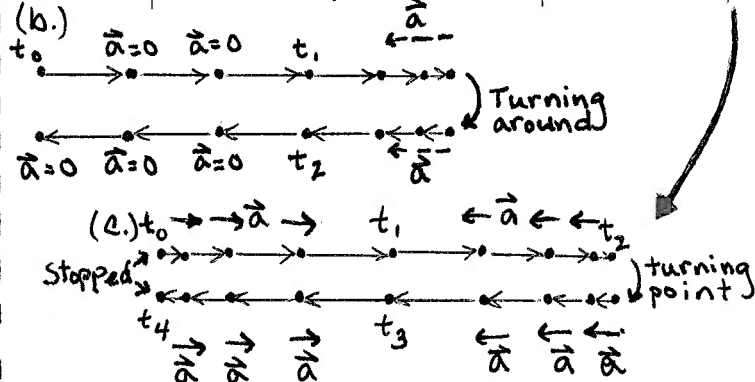 (b.)
t₀ a⃗=0 a⃗=0 t₁ a⃗
Turning
around
a⃗=0 a⃗=0 a⃗=0 t₂ a⃗
(c.) t₀ a⃗ t₁ a⃗ t₂
Stopped
turning
point
t₄ t₃
a⃗ a⃗ a⃗ a⃗ a⃗ a⃗